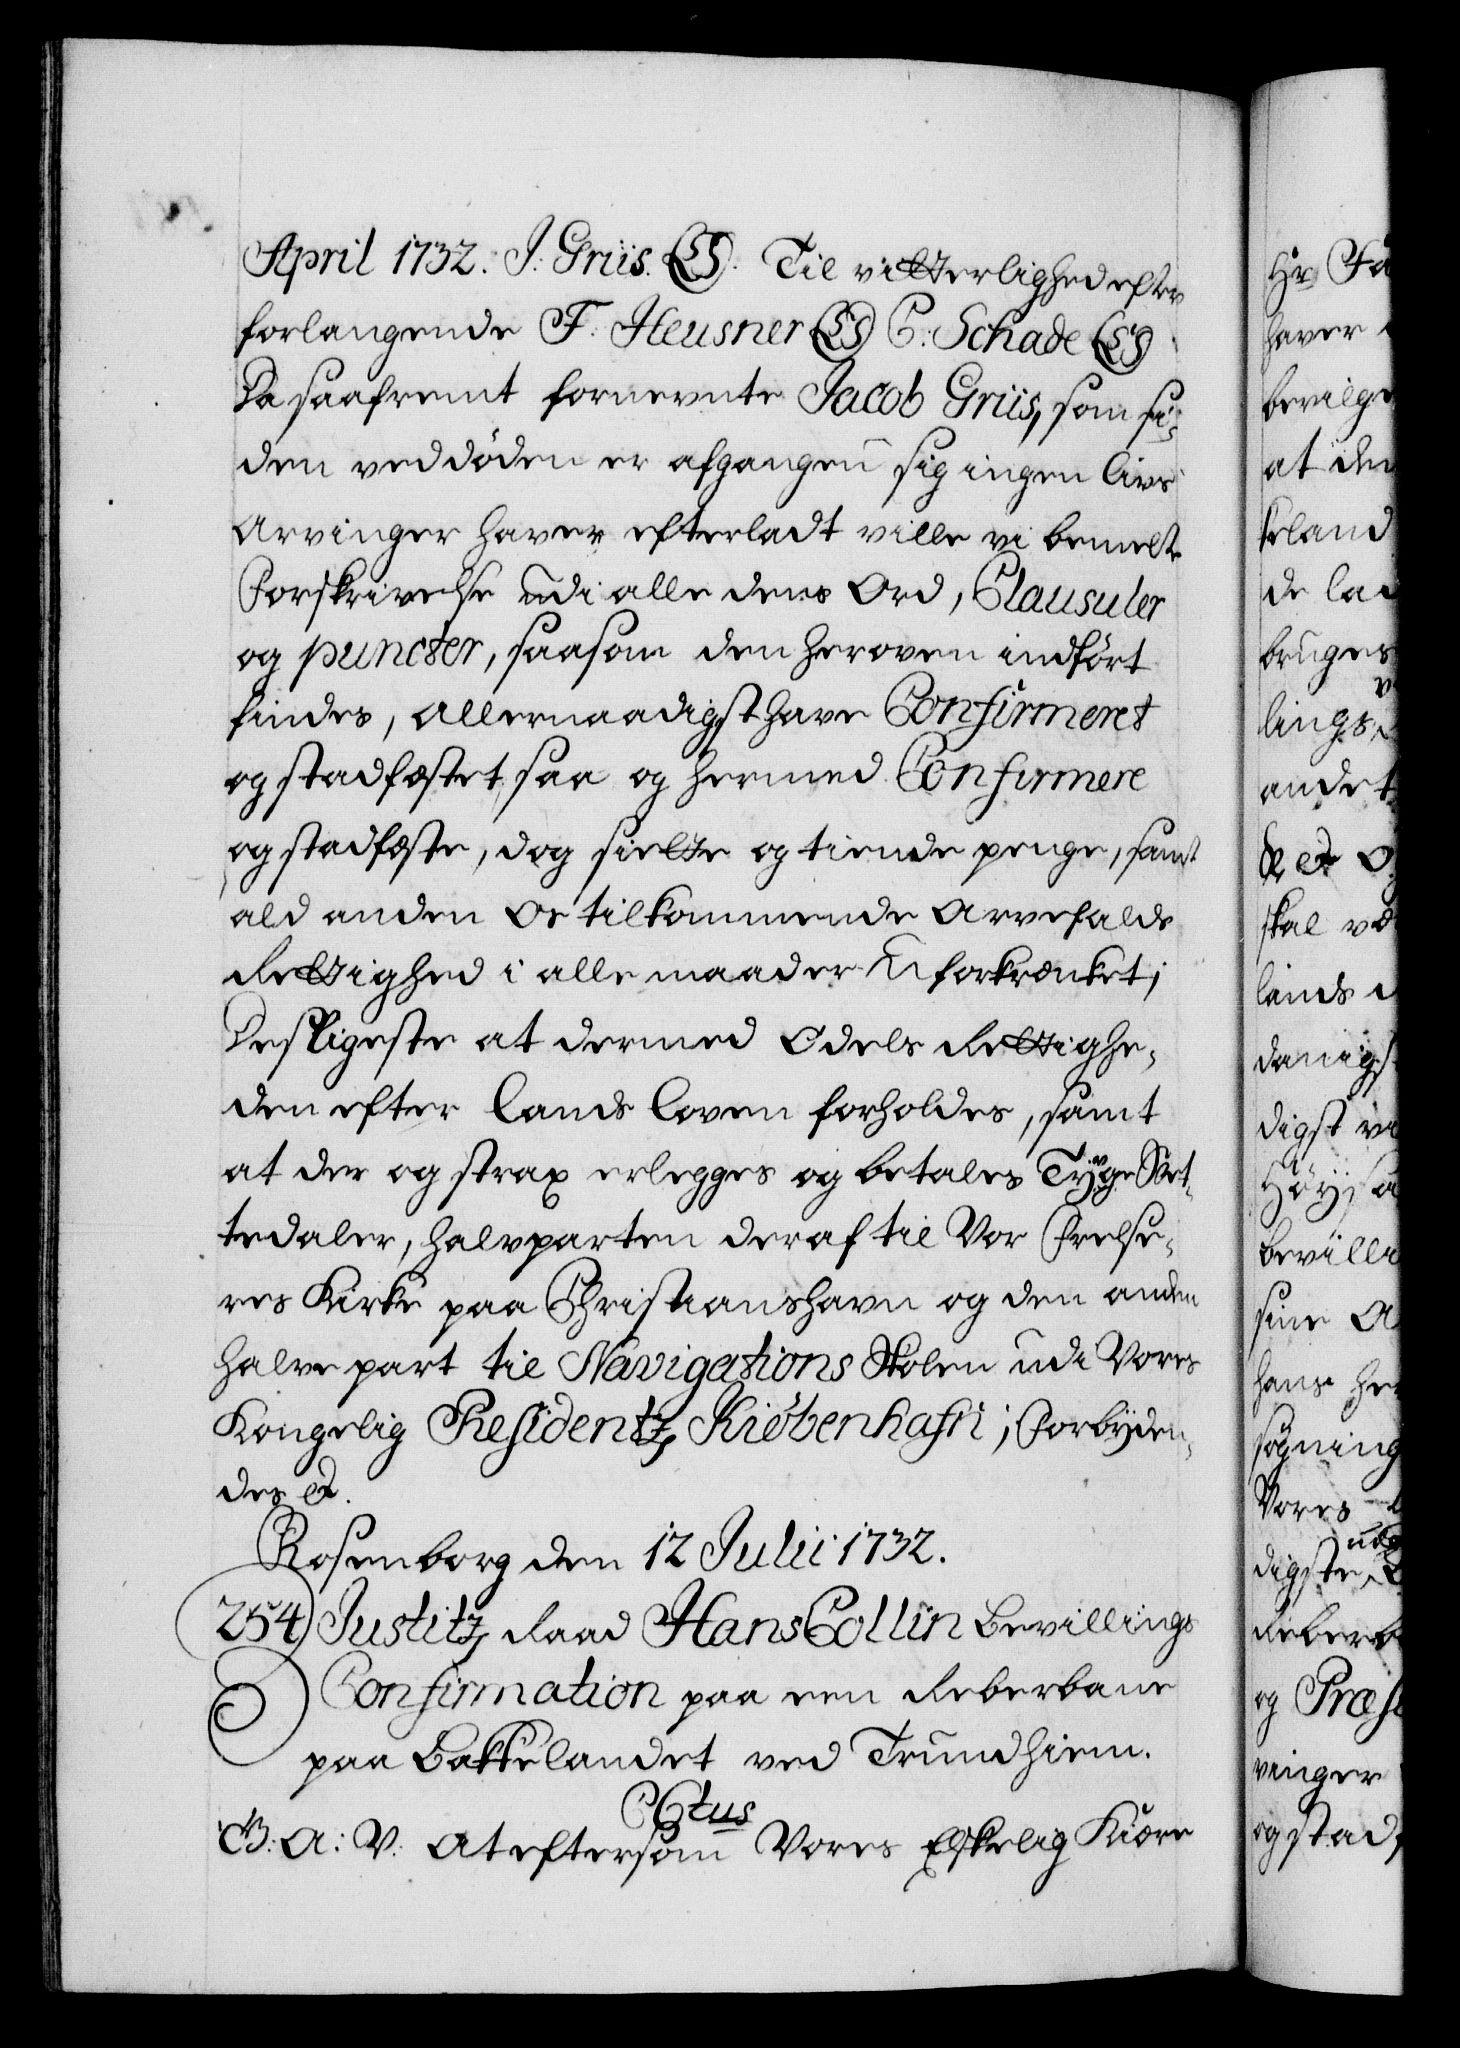 April 1732. J: Griis. (LS). Til vitterlighed efter
forlangende F: Heusner (LS) C: Schade (LS)
Da saafremt fornevnte Jacob Griis, som si-
den ved döden er afgangen sig ingen livs
Arvinger haver efterladt ville vi bemelte
Forskrivelse udi alle dens Ord, Clausuler
og puncter, saasom den heroven indfört
findes, allernaadigst have Confirmeret
og stadfæstet, saa og hermed Confirmere
og stadfæste, dog siette og tiende penge, samt
ald anden Os tilkommende Arvefalds
Rettighed i alle maader Uforkrænket;
Desligeste at dermed Odels Rettighe-
den efter Lands Loven forholdes, samt
at der og strax erlegges og betales Tÿge Ret-
tedaler, halvparten deraf til Vor Frelse-
res Kirke paa Christianshavn og den anden
halve part til Navigations Skolen udi Vores
Kongelig Residentz Kiöbenhafn; Forbÿden-
des &.
Rosenborg den 12 Julii 1732.
254) Justitz Raad Hans Collin Bevillings
Confirmation paa een Reberbane
paa Bakkelandet ved Trundhiem.
C Gtus
G: A: V: At eftersom Vores Elskelig Kiære
Hr Fa
haver
bevilge
at den
keland
de lad
bruges
lings
andet
& O
skal
lands
danigst
digst
Höysa
bevilli
sine A
hans
sögning
Vores
ud
digste
Reberba
og Præs
vinger
og stadf